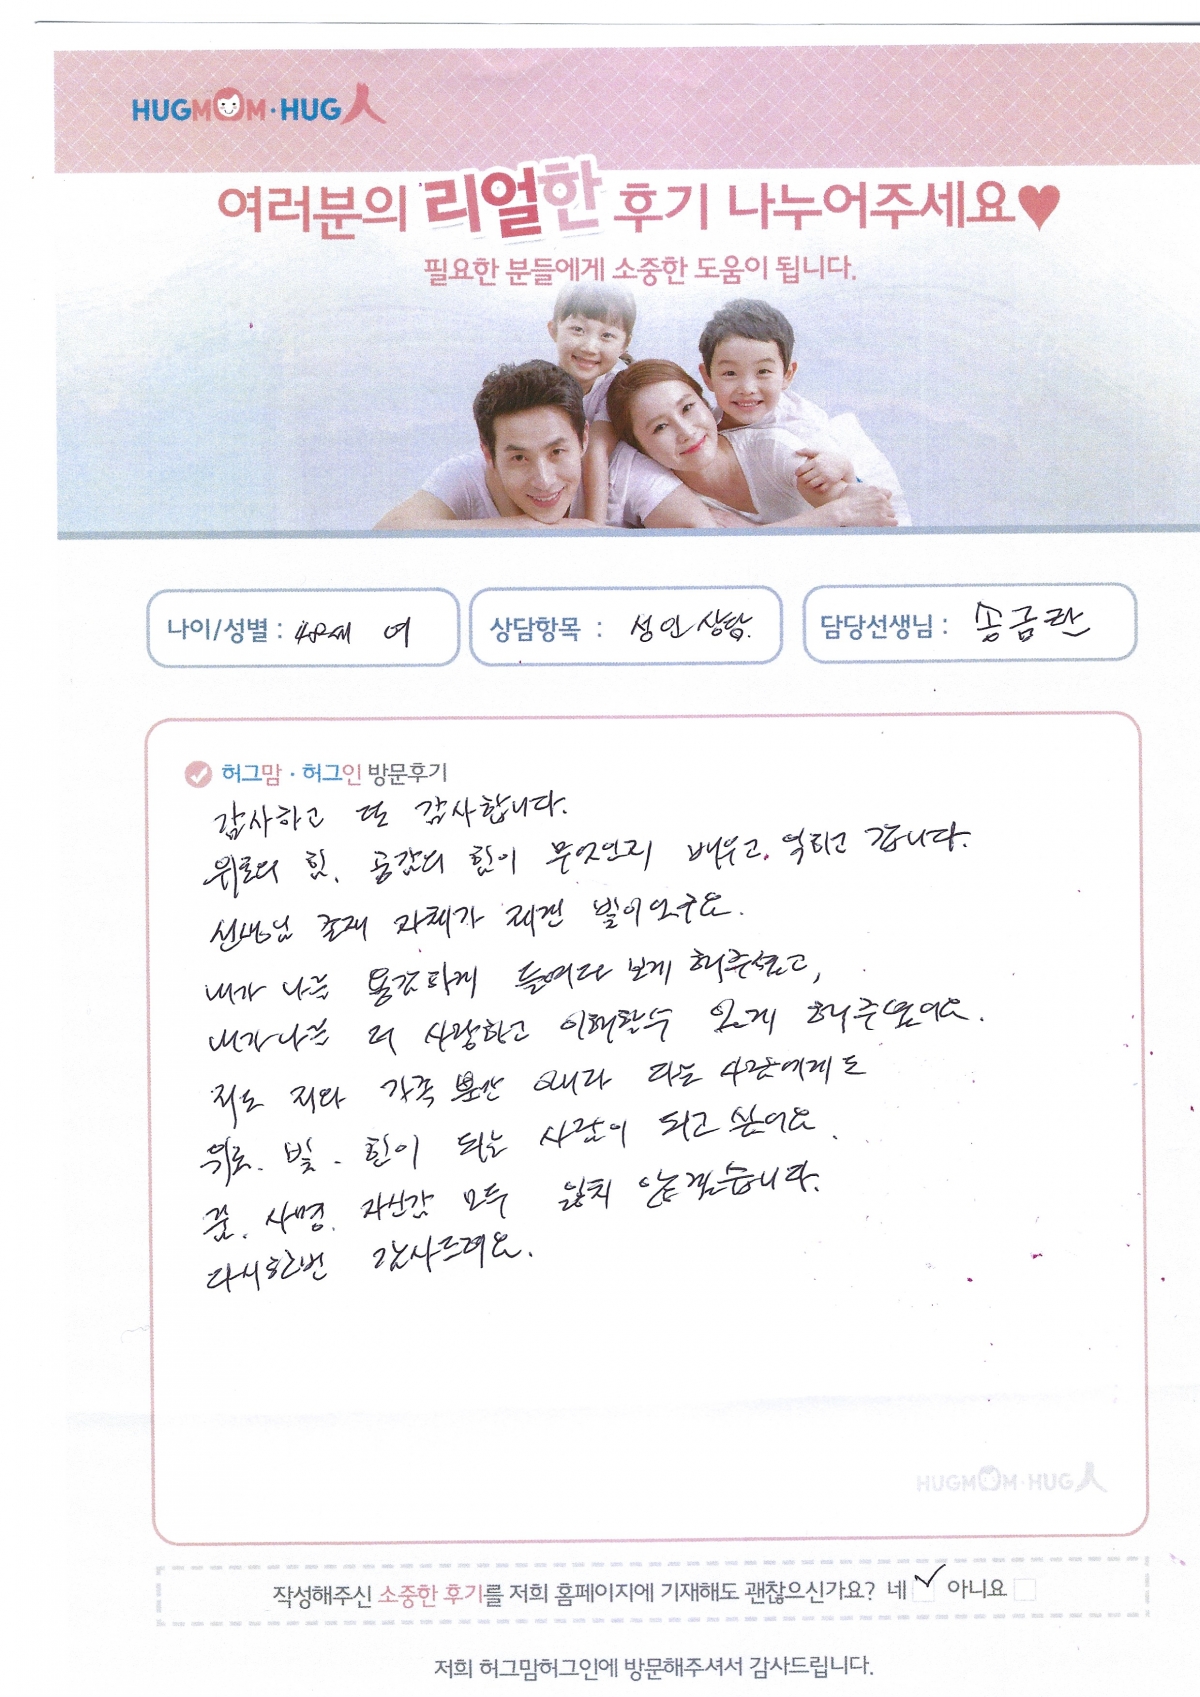 HUGMOM·HUG人
여러분의 리얼한 후기 나누어주세요♥
필요한 분들에게 소중한 도움이 됩니다.
나이/성별 : 48세 여
상담항목 : 성인상담.
담당선생님 : 송금란
허그맘 · 허그인 방문후기
감사하고 또 감사합니다.
위로의 힘. 공감의 힘이 무엇인지 배우고. 익히고 갑니다.
선생님 존재 자체가 제겐 빛이었구요.
내가 나를 용감하게 들여다 보게 해주셨고,
내가 나를 더 사랑하고 이해할수 있게 해주셨어요.
저도 저와 가족 뿐만 아니라 다른 사람에게도
위로. 빛. 힘이 되는 사람이 되고 싶어요.
꿈. 사명. 자신감 모두 잃지 않겠습니다.
다시한번 감사드려요.
HUGMOM·HUG人
작성해주신 소중한 후기를 저희 홈페이지에 기재해도 괜찮으신가요? 네 ✓ 아니요
저희 허그맘허그인에 방문해주셔서 감사드립니다.